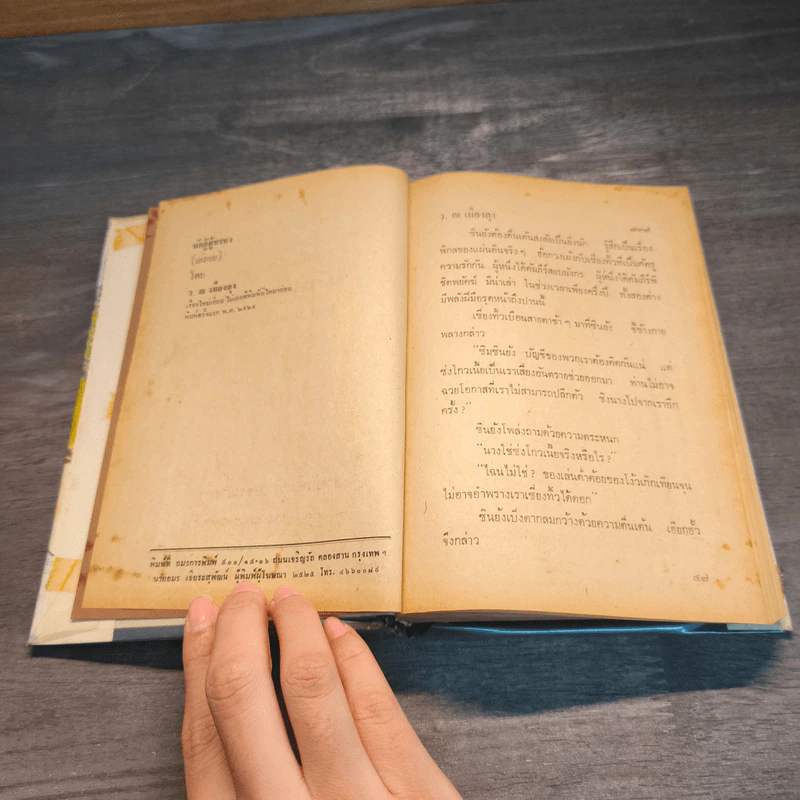 โดย
ว. ณ เมืองลุง
พิมพ์ที่ อมรการพิมพ์ ๙๐๐/๑๕-๑๖ ถนนเจริญรัถ คลองสาน กรุงเทพ ฯ
นายอมร เจียระสุพัฒน์ ผู้พิมพ์ผู้โฆษณา ๒๕๒๕ โทร. ๔๖๖๐๐๘๔
ว. ณ เมืองลุง
ซินยังต้องตื่นเต้นสงสัยเป็นยิ่งนัก รู้สึกเป็นเรื่อง
พิกลของแผ่นดินจริงๆ ฮักกวงเม้งกับเซี่ยงทิ้วที่เป็นศัตรู
ความรักกัน ผู้หนึ่งได้คัมภีร์สยบมังกร ผู้หนึ่งได้คัมภีร์พิ
ชิตพยัคฆ์ มิน่าเล่า ในช่วงเวลาเพียงครึ่งปี ทั้งสองต่าง
มีพลังฝีมือรุดหน้าถึงปานนี้
เซี่ยงทิ้วเบือนสายตาช้า ๆ มาที่ซินยัง ชี้ข้างกาย
พลางกล่าว
“ซิมซินยัง บัญชีของพวกเราต้องคิดกันแน่ แต่
ซ่งโกวเนี้ยเป็นเราเสี่ยงอันตรายช่วยออกมา ท่านไม่อาจ
ฉวยโอกาสที่เราไม่สามารถปลีกตัว ชิงนางไปจากเราอีก
ครั้ง?”
ซินยังโพล่งถามด้วยความตระหนก
“นางใช่ซ่งโกวเนี้ยจริงหรือไร?”
“ไฉนไม่ใช่? ของเล่นต่ำต้อยของโง้วเกิกเทียนจุน
ไม่อาจอำพรางเราเซี่ยงทิ้วได้ดอก”
ซินยังเบิ่งตากลมกว้างด้วยความตื่นเต้น เฮียกฮั้ว
จึงกล่าว